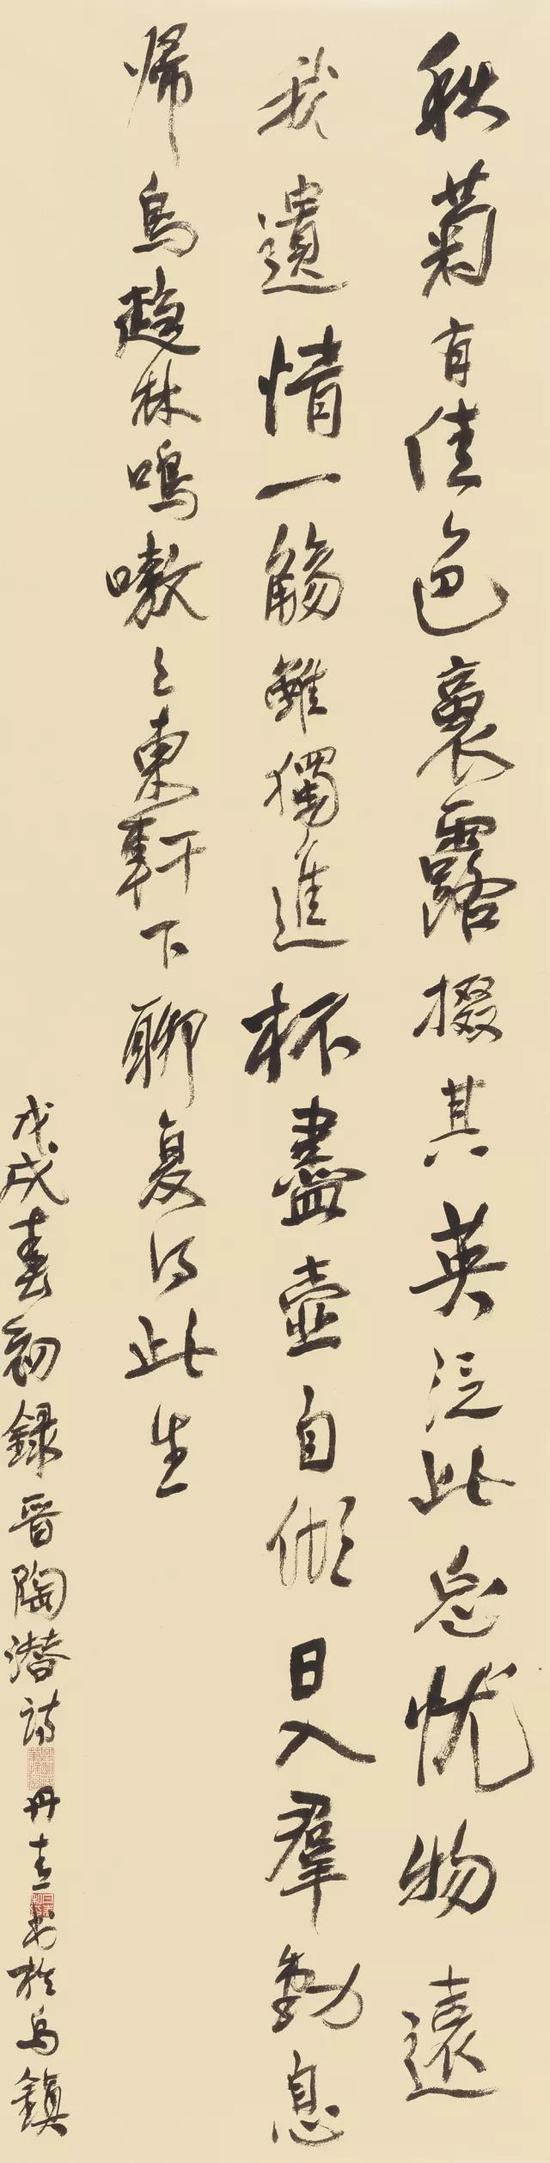 秋菊有佳色裛露掇其英泛此忘忧物遠
我遺情一觴雖獨進杯盡壺自傾日入羣動息
帰鳥趨林鳴嗷々東軒下聊复得此生
戊戌春初録晋陶潜詩丹书於乌鎮